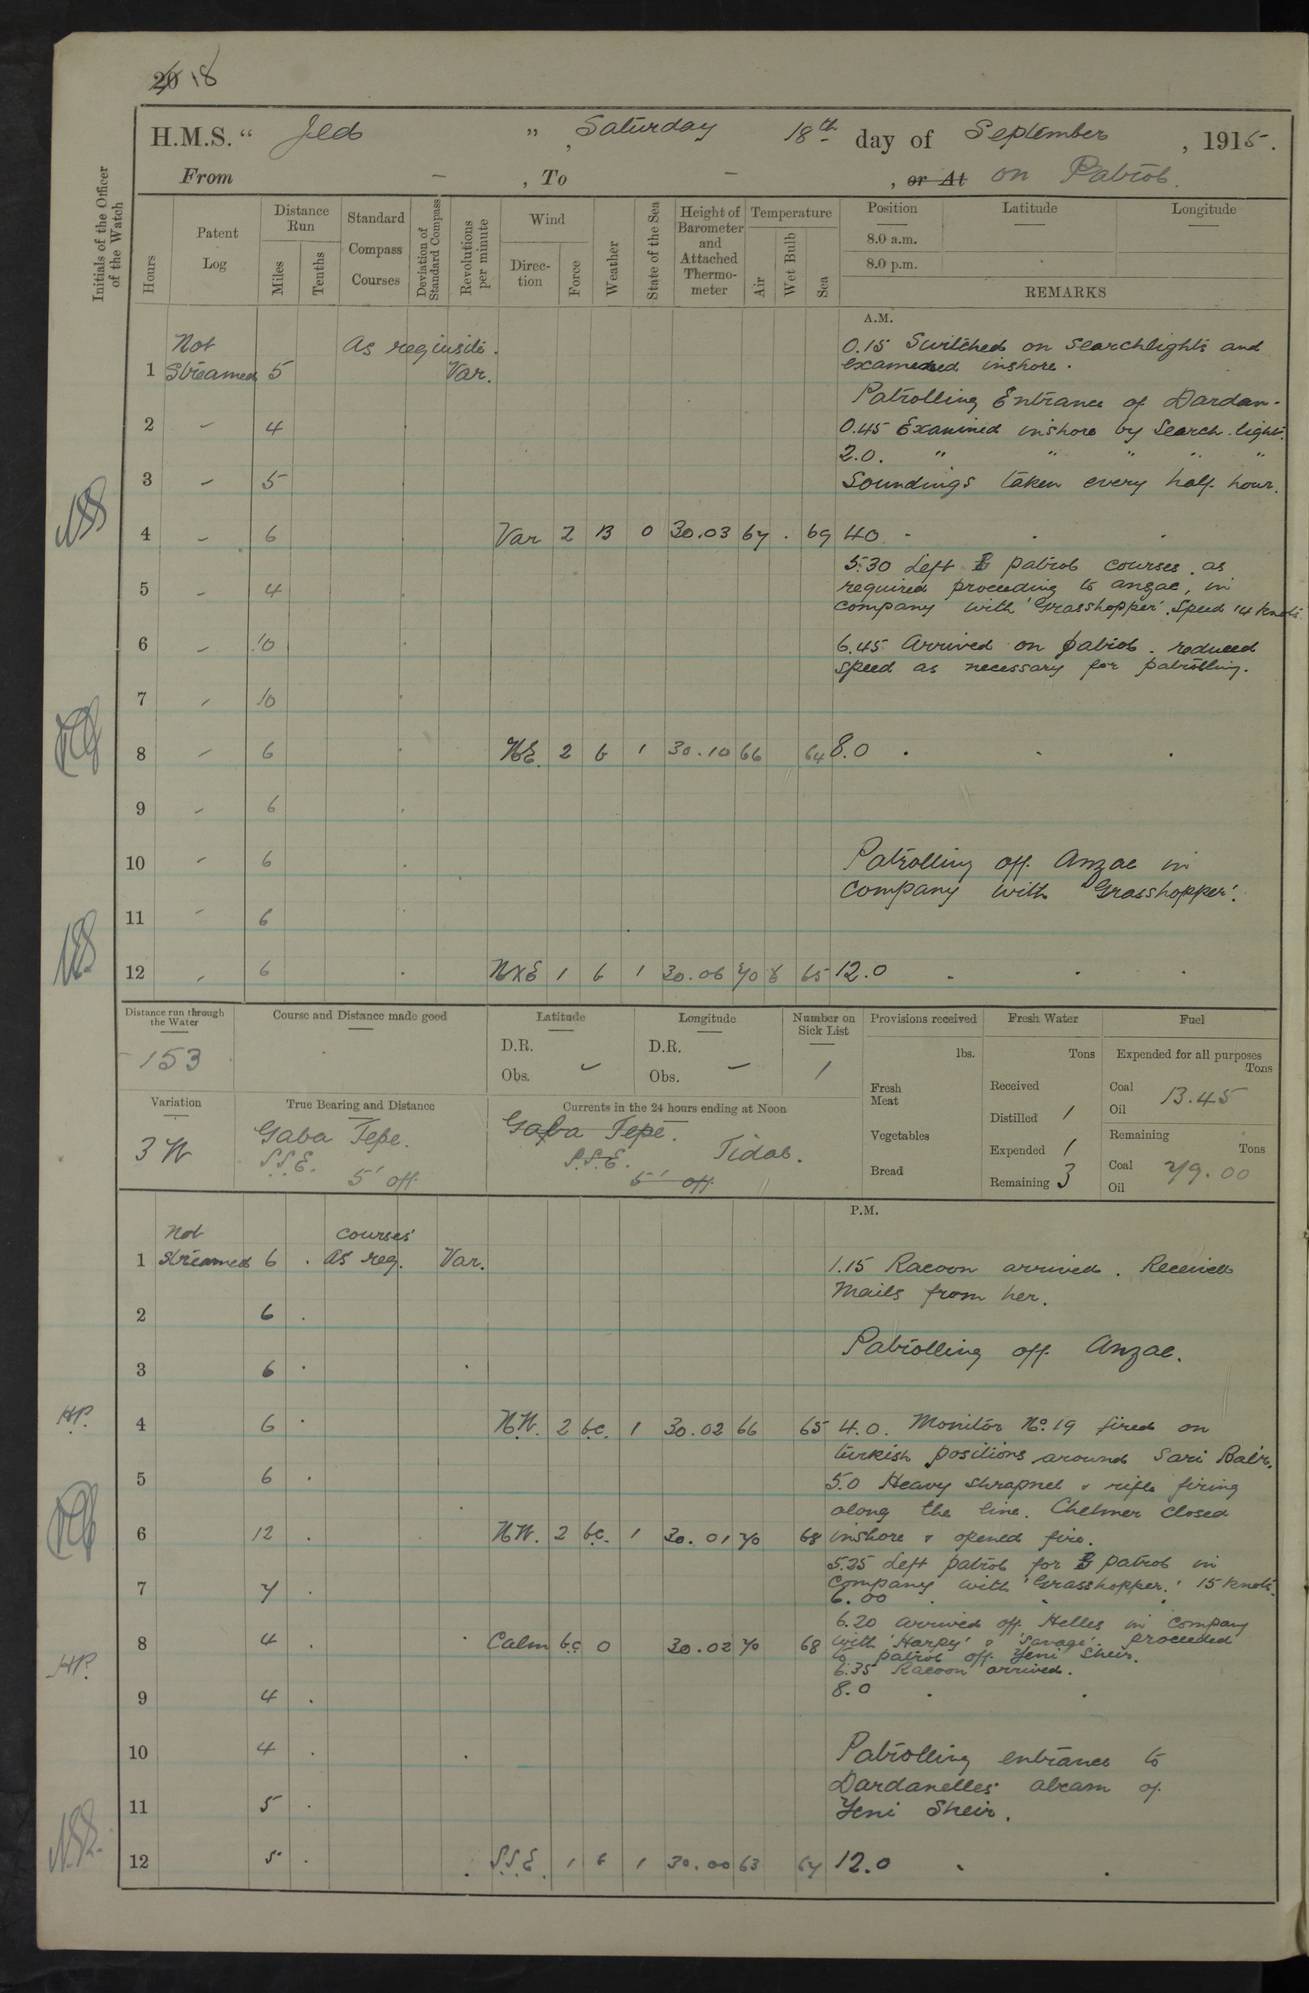 20 18
H.M.S. “ Jed ”, Saturday 18th day of September, 1915.
From - , To - , or At on Patrol.
Initials of the Officer of the Watch
Hours
Patent Log
Distance Run
Miles
Tenths
Standard Compass Courses
Deviation of Standard Compass
Revolutions per minute
Wind
Direction
Force
Weather
State of the Sea
Height of Barometer and Attached Thermometer
Temperature
Air
Wet Bulb
Sea
Position Latitude Longitude
8.0 a.m.
8.0 p.m.
REMARKS
A.M.
Not As requisite. 0.15 Switched on searchlights and
1 Streamed 5 Var. examined inshore.
Patrolling Entrance of Dardan-
2 - 4 0.45 Examined inshore by Search-light.
2.0. " " " " "
3 - 5 Soundings taken every half hour.
4 - 6 Var 2 B 0 30.03 67 . 69 4.0 . . .
5.30 Left B patrol courses as
5 - 4 required proceeding to anzac, in
company with 'Grasshopper'. Speed 14 knots
6 - 10 6.45 Arrived on patrol. reduced
speed as necessary for patrolling.
7 - 10
8 - 6 NE. 2 b 1 30.10 66 64 8.0 . . .
9 - 6
10 - 6 Patrolling off Anzac in
company with 'Grasshopper'.
11 - 6
12 - 6 NXE 1 b 1 30.06 70 65 12.0 . . .
Distance run through the Water
153
Course and Distance made good
Latitude
D.R.
Obs. -
Longitude
D.R.
Obs. -
Number on Sick List
1
Provisions received
lbs.
Fresh Meat
Vegetables
Bread
Fresh Water
Tons
Received
Distilled 1
Expended 1
Remaining 3
Fuel
Expended for all purposes
Tons
Coal 13.45
Oil
Remaining
Tons
Coal 79.00
Oil
Variation
3 W
True Bearing and Distance
Gaba Tepe.
S.S.E.
5' off
Currents in the 24 hours ending at Noon
Gaba Tepe.
S.S.E. Tidal.
5' off
P.M.
Not courses
1 Streamed 6 . as req. Var. 1.15 Racoon arrived. Received
Mails from her.
2 6 .
Patrolling off Anzac.
3 6 .
4 6 . N.W. 2 bc. 1 30.02 66 65 4.0. Monitor No. 19 fired on
turkish positions around Sari Bair.
5 6 . 5.0 Heavy shrapnel & rifle firing
along the line. Chelmer closed
6 12 . N.W. 2 bc. 1 30.01 70 68 inshore & opened fire.
5.25 Left patrol for B patrol in
7 7 . company with 'Grasshopper.' 15 knots.
6.00 . . .
6.20 arrived off Helles in company
8 4 . Calm bc 0 30.02 70 68 with 'Harpy' & 'Savage'. proceeded
to patrol off Yeni Sheir.
6.35 Racoon arrived.
9 4 . 8.0 . .
10 4 . Patrolling entrance to
Dardanelles abeam of
11 5 . Yeni Sheir.
12 5 . S.S.E. 1 b 1 30.00 63 67 12.0 . .
H.P.
H.P.